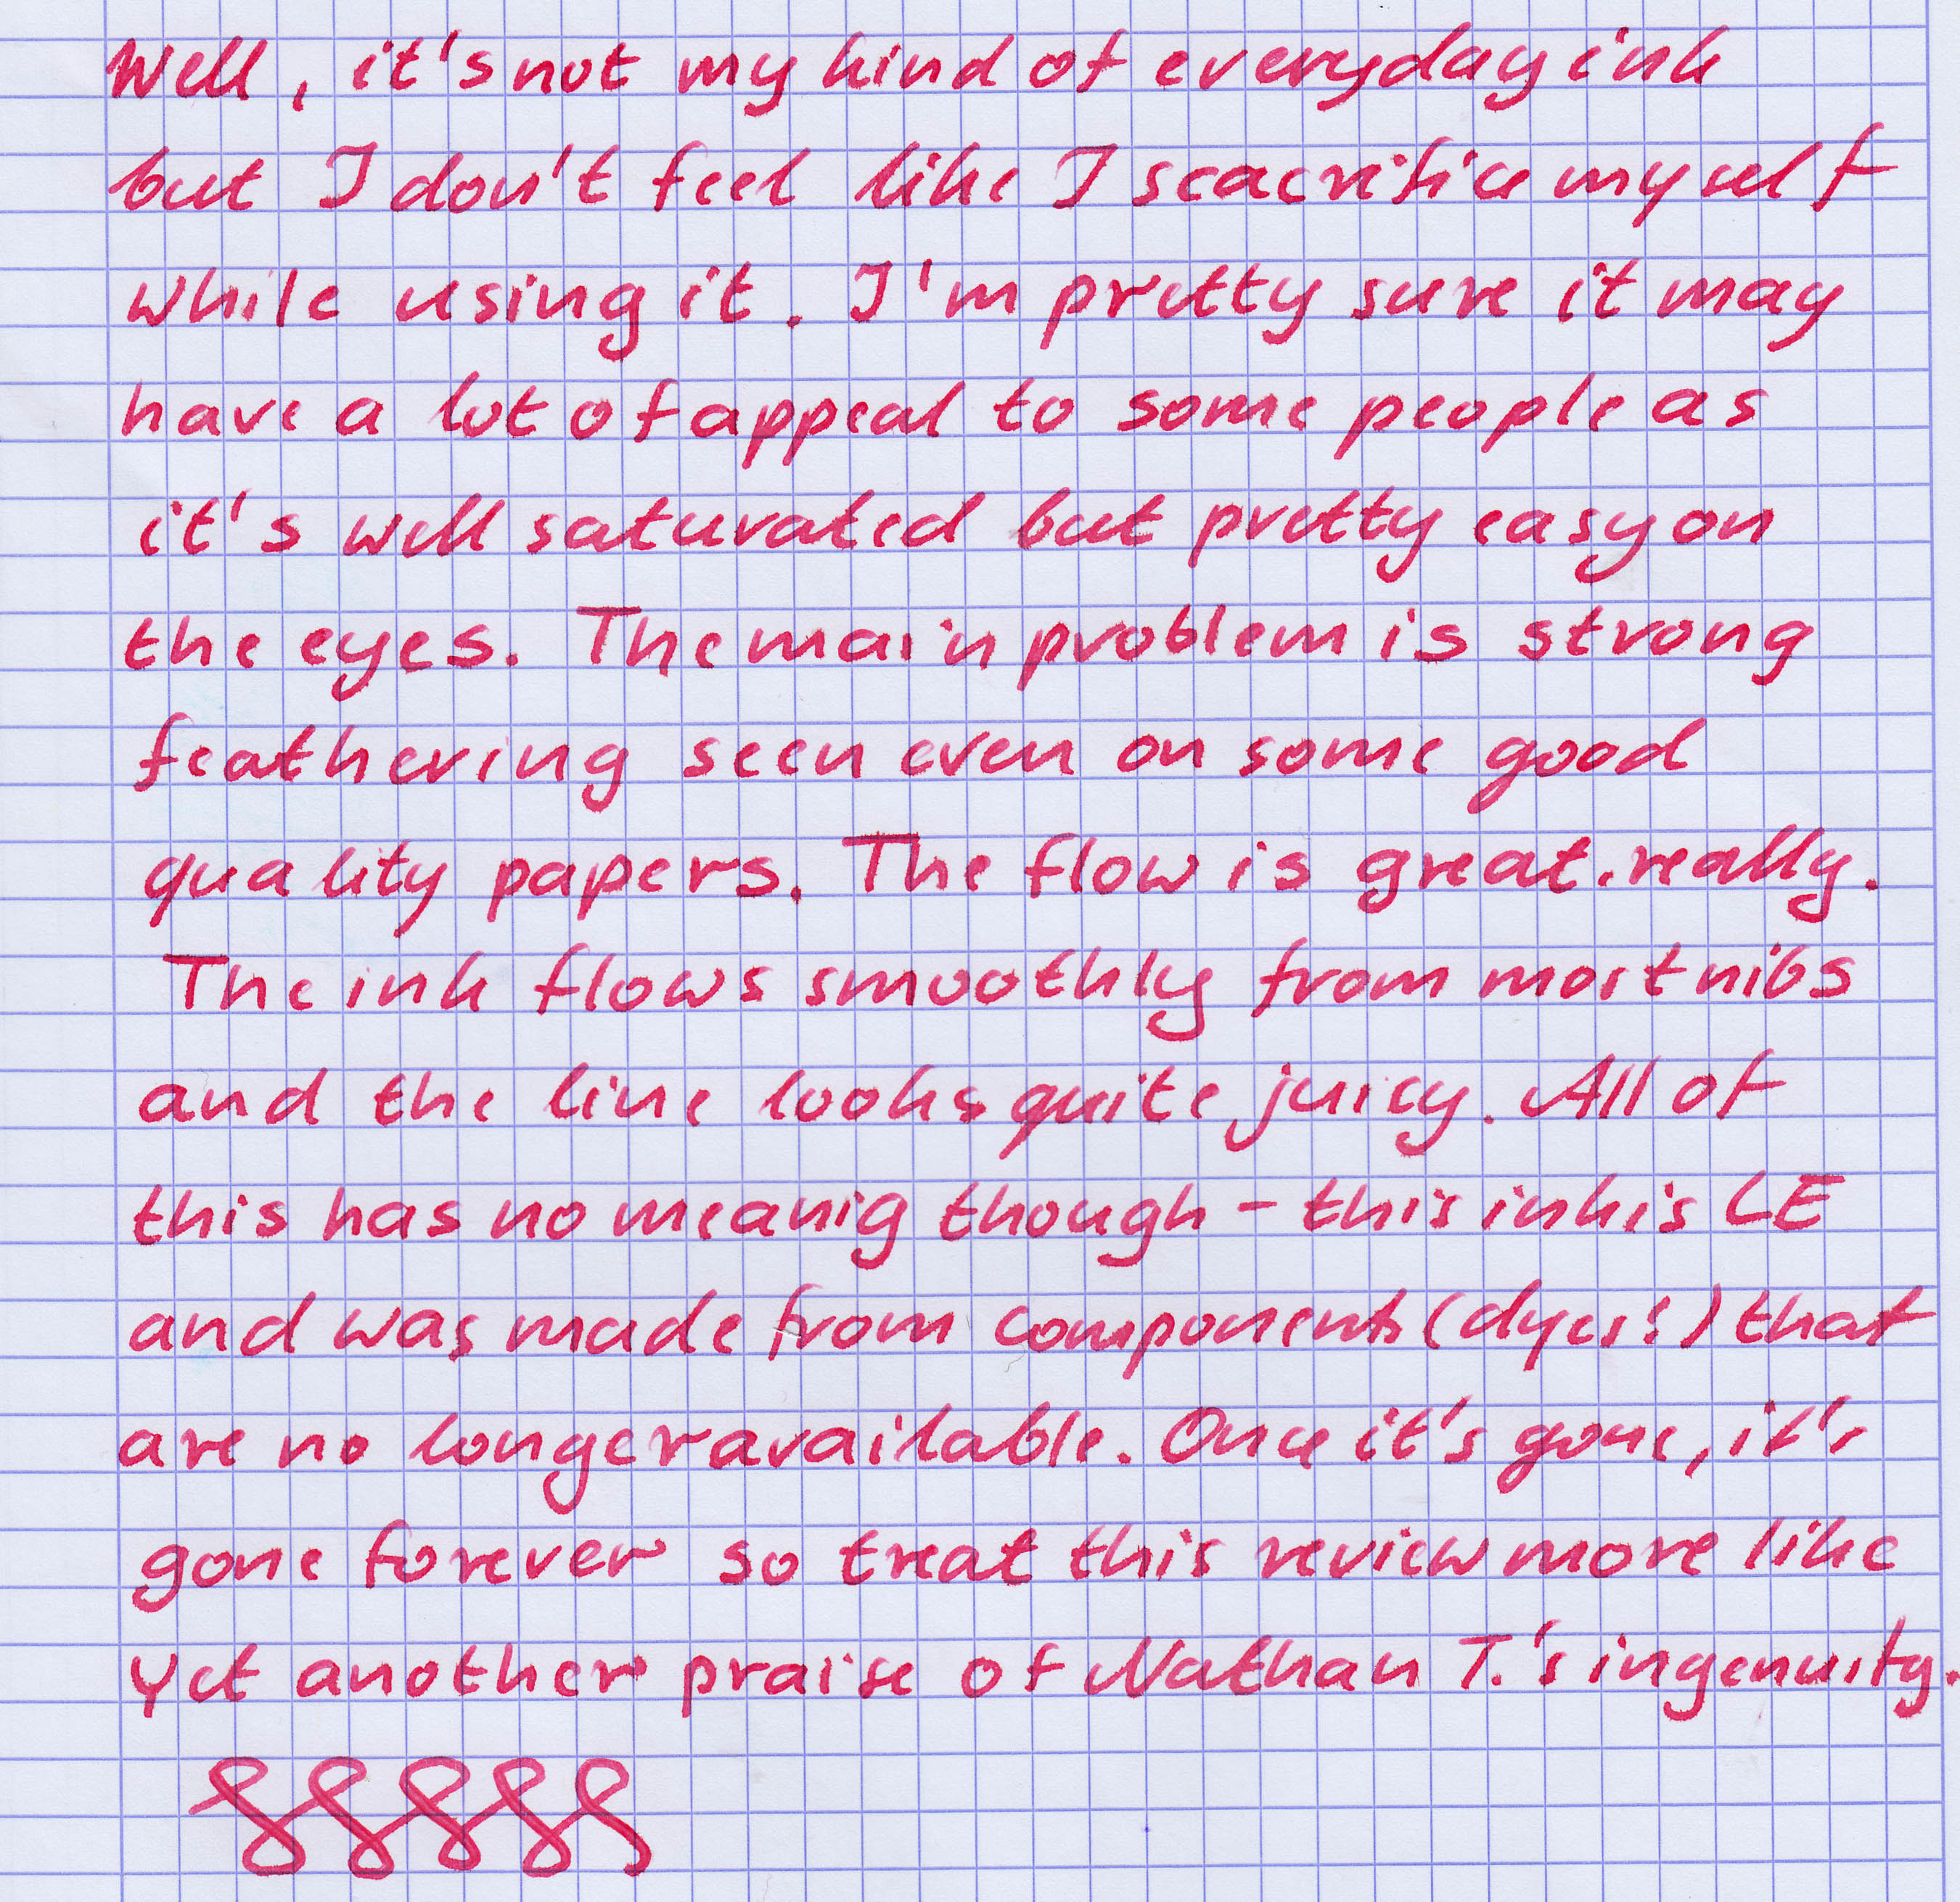 Well, it's not my kind of everyday ink
but I don't feel like I scacrifice myself
while using it. I'm pretty sure it may
have a lot of appeal to some people as
it's well saturated but pretty easy on
the eyes. The main problem is strong
feathering seen even on some good
quality papers. The flow is great. really.
The ink flows smoothly from most nibs
and the line looks quite juicy. All of
this has no meanig though - this ink is LE
and was made from components (dyes!) that
are no longer available. Once it's gone, it's
gone forever so treat this review more like
yet another praise of Nathan T.'s ingenuity.